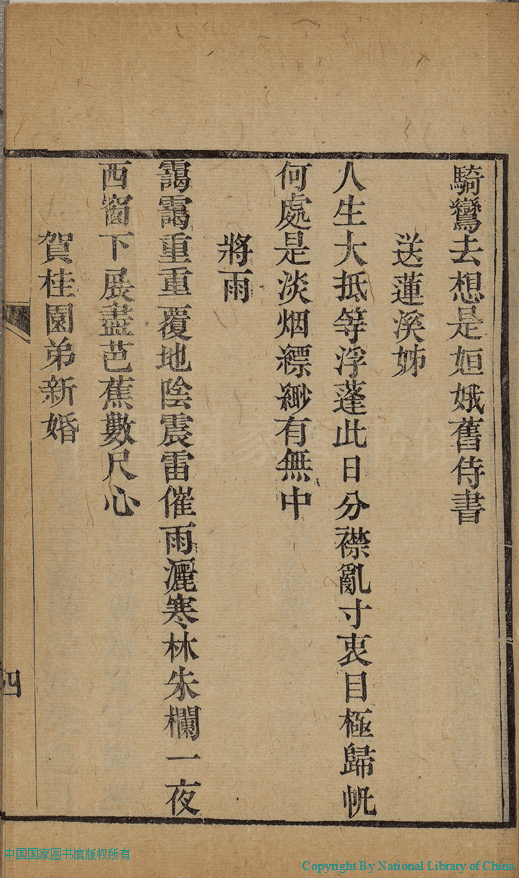 騎鸞去想是姮娥舊侍書
送蓮溪姊
人生大抵等浮蓬此日分襟亂寸衷目極歸帆
何處是淡烟縹緲有無中
將雨
靄靄重重覆地陰震雷催雨灑寒林朱欄一夜
西窗下展盡芭蕉數尺心
賀桂園弟新婚
四
中国国家图书馆版权所有
Copyright By National Library of China